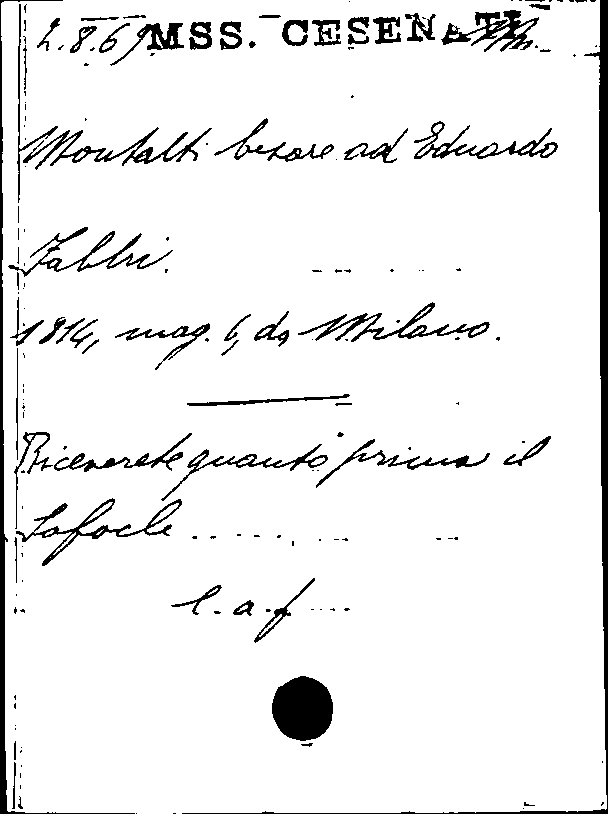 2.8.69 MSS. CESENATI
Montalti Cesare ad Eduardo
Fabbri.
1814, mag. 6, da Milano.
Riceverete quanto prima il
Sofocle ..........
l. a. f ....